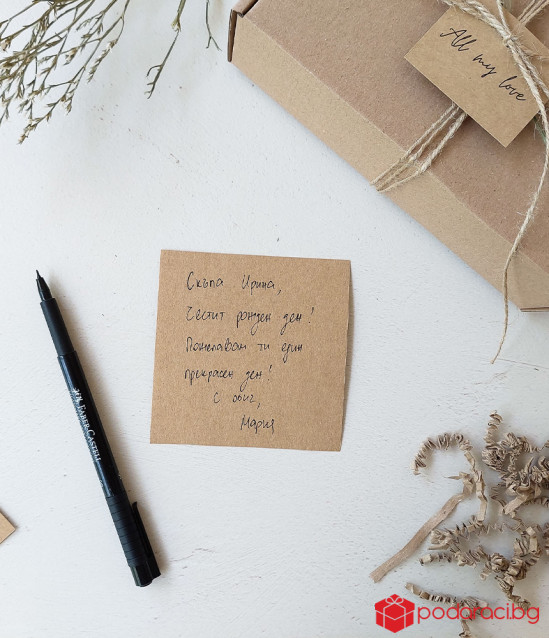 All my love
Скъпа Ирина,
Честит рожден ден!
Пожелавам ти един
прекрасен ден!
С обич,
Мария
FABER-CASTELL
podaraci.bg